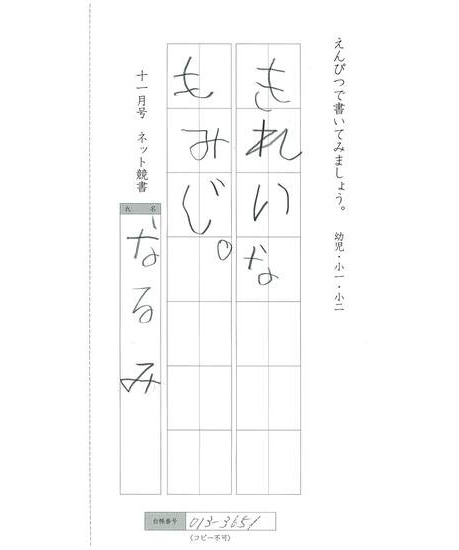 えんぴつで書いてみましょう。 幼児・小一・小二
きれいな
もみじ。
十一月号 ネット競書
氏名
なるみ
台帳番号 013-3651
(コピー不可)